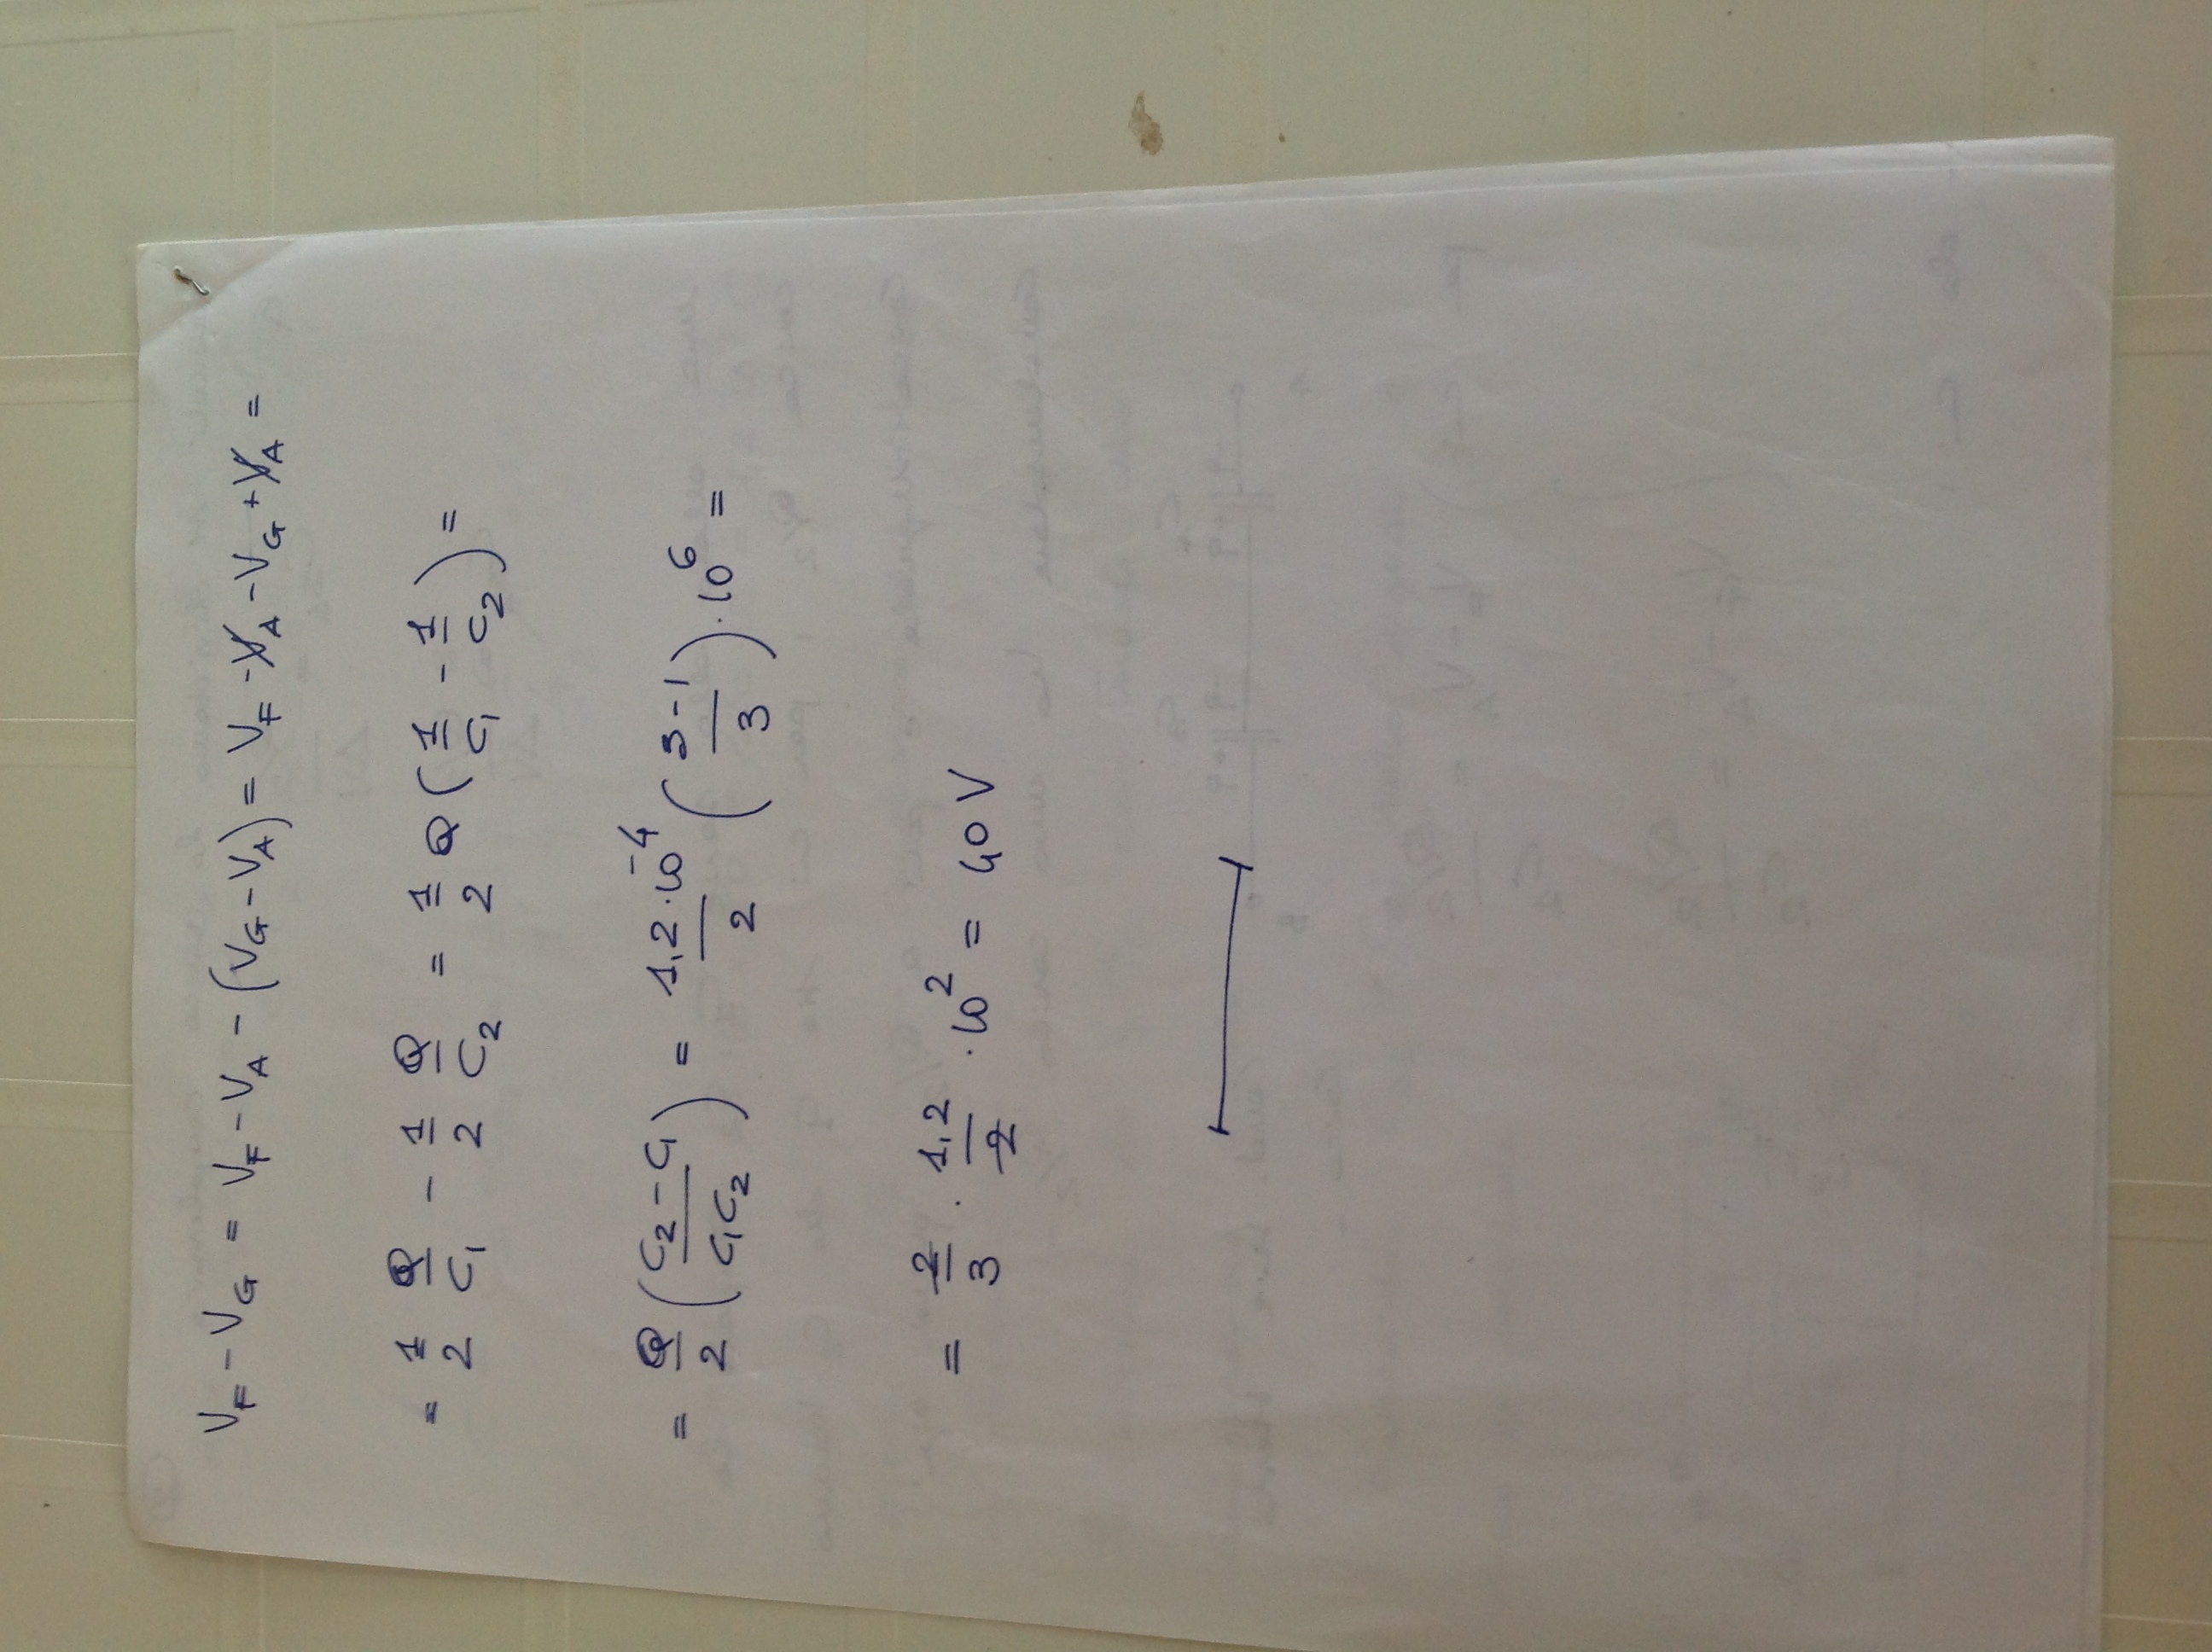 V_F - V_G = V_F - V_A - (V_G - V_A) = V_F - V_A - V_G + V_A =
= 1/2 Q/C_1 - 1/2 Q/C_2 = 1/2 Q (1/C_1 - 1/C_2) =
= Q/2 ((C_2 - C_1)/(C_1 C_2)) = (1,2 · 10^-4)/2 ((3-1)/3) · 10^6 =
= 2/3 · 1,2/2 · 10^2 = 40 V